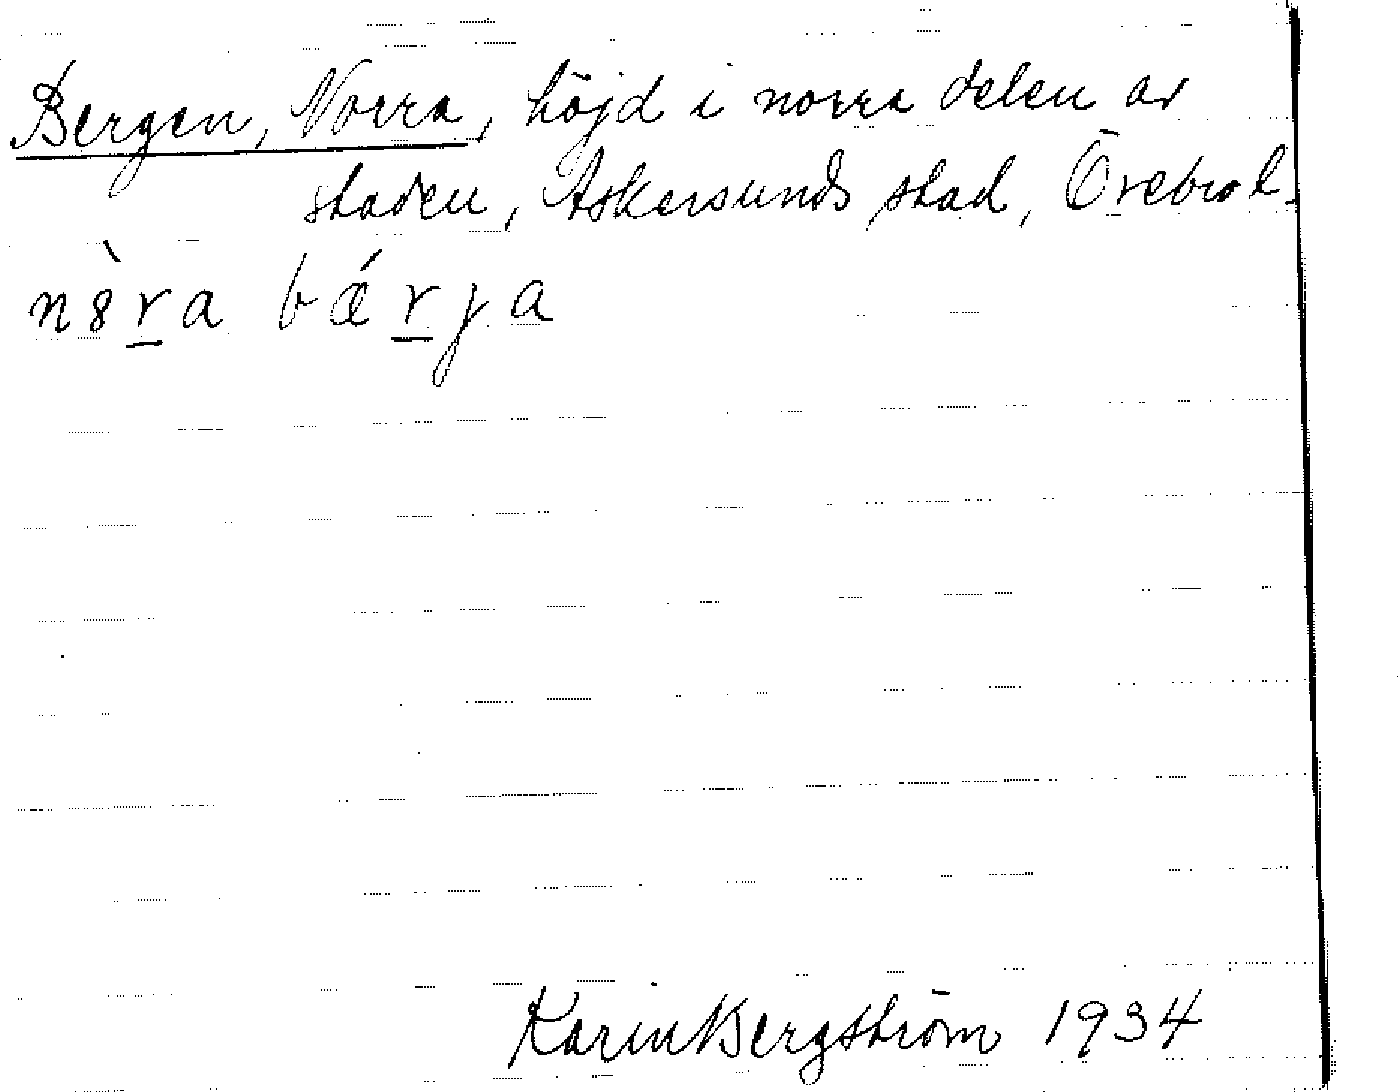 Bergen, Norra, höjd i norra delen av
staden, Askersunds stad, Örebro l.
n8̀ra bǽrja
Karin Bergström 1934